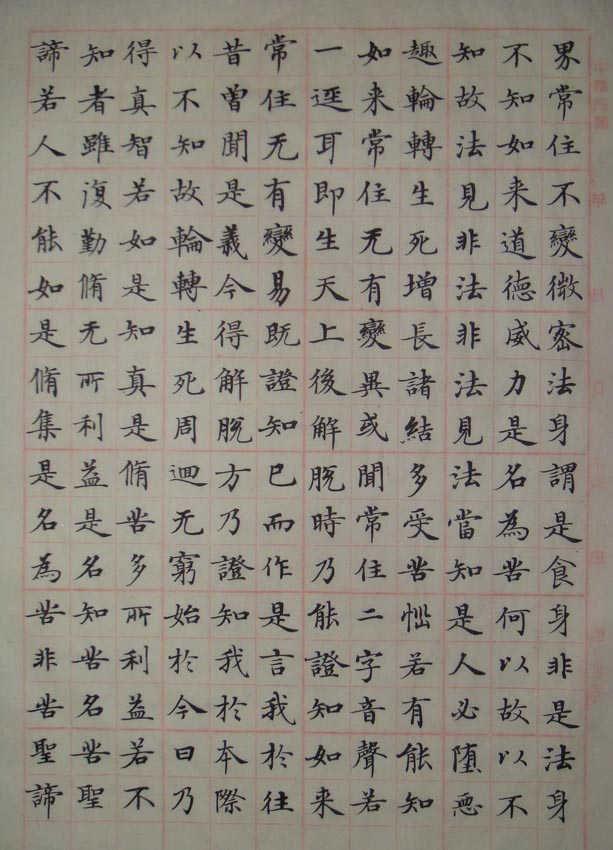 界常住不變微密法身謂是食身非是法身
不知如来道德威力是名為苦何以故以不
知故法見非法非法見法當知是人必墮惡
趣輪轉生死增長諸結多受苦惱若有能知
如来常住无有變異或聞常住二字音聲若
一逕耳即生天上後解脫時乃能證知如来
常住无有變易既證知已而作是言我於往
昔曽聞是義今得解脫方乃證知我於本際
以不知故輪轉生死周迴无窮始於今日乃
得真智若如是知真是脩苦多所利益若不
知者雖復勤脩无所利益是名知苦名苦聖
諦若人不能如是脩集是名為苦非苦聖諦